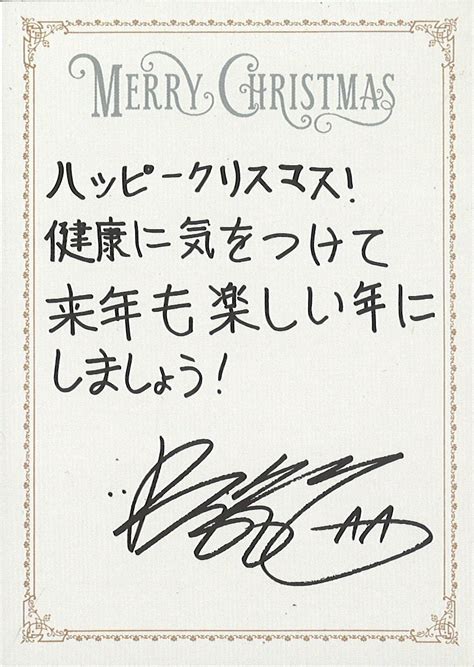 MERRY CHRISTMAS
ハッピークリスマス!
健康に気をつけて
来年も楽しい年に
しましょう!
AA